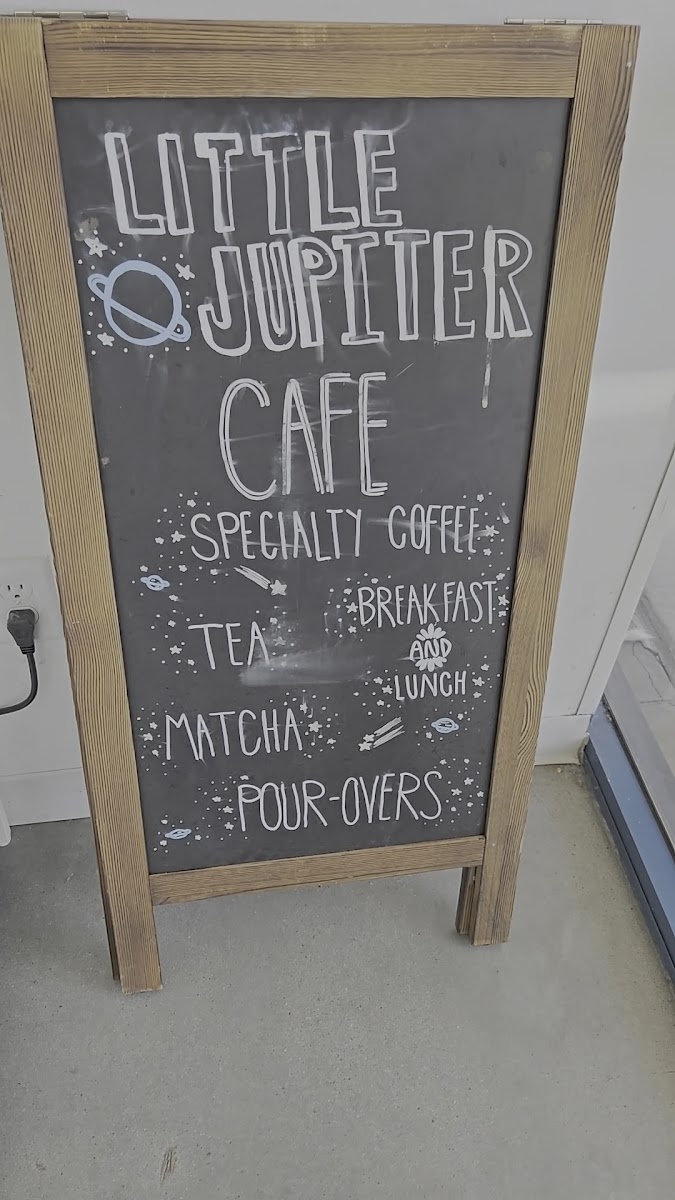 LITTLE
JUPITER
CAFE
SPECIALTY COFFEE
TEA
BREAKFAST
AND
LUNCH
MATCHA
POUR-OVERS